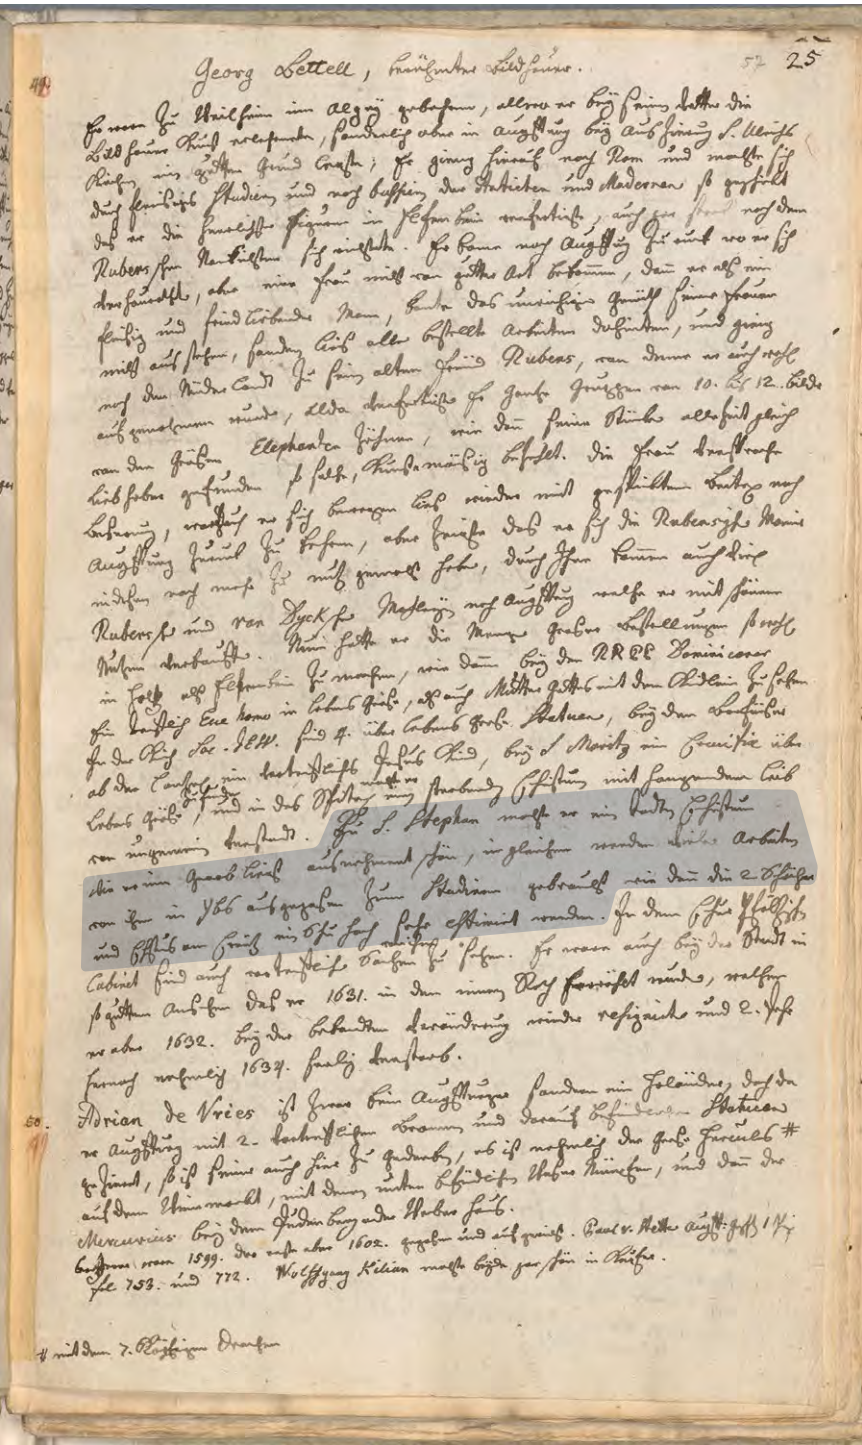 52 25
49
Georg Bettell, berühmter Bildhauer.
Er war zu Weilheim im Algey gebohren, allwo er bey seim Vetter die
Bildhauer Kunst erlehrnete, sonderlich aber in Augspurg bey auszierung S. Ulrichs
Kirchen ein guten Grund legte; Er gieng hierauf nach Rom und machte sich
durch fleisiges Studieren und nach bossiren der Antichen und Modernen so geschickt
das er die herrlichste Figuren in Helfenbein verfertigte, auch gar starck nach dem
Rubens schen sich richtete. Er kame nach Augspurg zu ruck wo er sich
verheurathet, aber eine Frau nicht von guter Art bekommen, dann er als ein
fleisig und fridliebender Mann, konte das unruhige Gemüth seiner Frauen
nicht ausstehen, sondern lies alle bestelte Arbeiten dahinden, und gieng
nach den Niderlandt zu seim alten Freünd Rubens, von deme er auch wohl
aufgenohmen wurde, Allda verfertigte Er gantze Gruppen von 10. bis 12. bilder
von den grösten Elephanten Zähnen, wie dann seine Stücke allezeit gleich
liebhaber gefunden so solche, Kunstmäsig bezahlt. die Frau versprache
besserung, wordurch er sich bewegen lies wieder mit gespicktem Beitel nach
Augspurg zuruck zu kehren, aber zeigte das er sich die Rubensische Manier
indessen noch mehr zu nutz gemacht habe, durch Ihne kamen auch viel
Rubens sche und van Dyck sche Mahlereyen nach Augspurg welche er mit schönem
Nutzen verkauffte. Nun hatte er die Menge grosser Bestellungen so wohl
in Holtz als Helfenbein zu machen, wie dann bey den RRPP Dominicaner
Ein trefflich Ecce homo in lebens größe, als auch Mutter Gottes mit dem Kindlein zu sehen.
In der Kirch Soc. JESU. sind 4. über lebens große Statuen, bey den Barfüsser
ob der Cantzel ein vortrefflichs Jesus Kind, bey S Moritz ein Crucifix über
lebens Größe, und in das Spital machte er ein sterbenden Christum mit hangendem leib
von ungemein verstandt. Zu S. Stephan machte er ein todten Christum
wie er im Graab liegt ausnehment schön, in gleichem werden viele Arbeiten
von ihm in Gbs ausgegossen zum Studiren gebraucht wie dann die 2 Schächer
und Cristus am Creütz ein Schu hoch sehr estimirt werden. In dem Chur Pfältzisch
Cabinet sind auch vortreffliche Sachen von ihme zu sehen. Er ware auch bey der Stadt in
so gutten Ansehen das er 1631. in den innern Rath erwöhlt wurde, welchen
er aber 1632. bey der bekandten veränderung wieder resignirte und 2. Jahr
hernach nehmlich 1634. seelig verstarb.
50.
Adrian de Vries ist zwar kein Augspurger sondern ein Holänder, doch da
er Augspurg mit 2. vortrefflichen Bronnen und darauf befindlichen Statuen
gezieret, so ist seiner auch hier zu gedencken, es ist nehmlich der große Herculs #
auf dem Weinmarckt, mit denen unten befindlichen Wasser Nimphen, und dann der
Mercurius bey dem Weber Haus.
war 1599. der erste aber 1602. gegossen und aufgericht. Paul v. Stetten Augsp: Gesch 1 Th:
fol 753. und 772. Wolffgang Kilian machte beyde gar schön in Kupfer.
# mit dem 7. Köpfigen Drachen